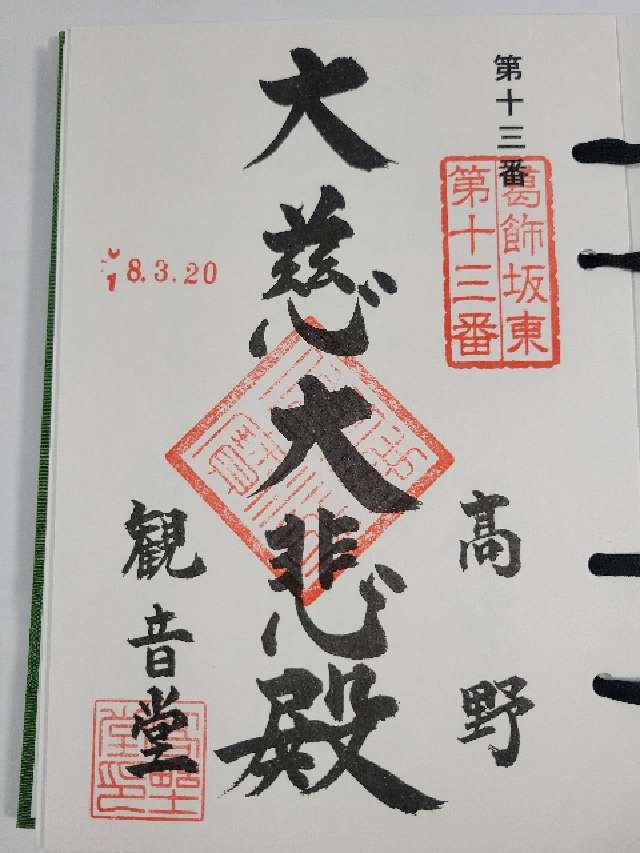 第十三番
葛飾坂東
第十三番
高野
大慈大悲殿
8.3.20
観音堂